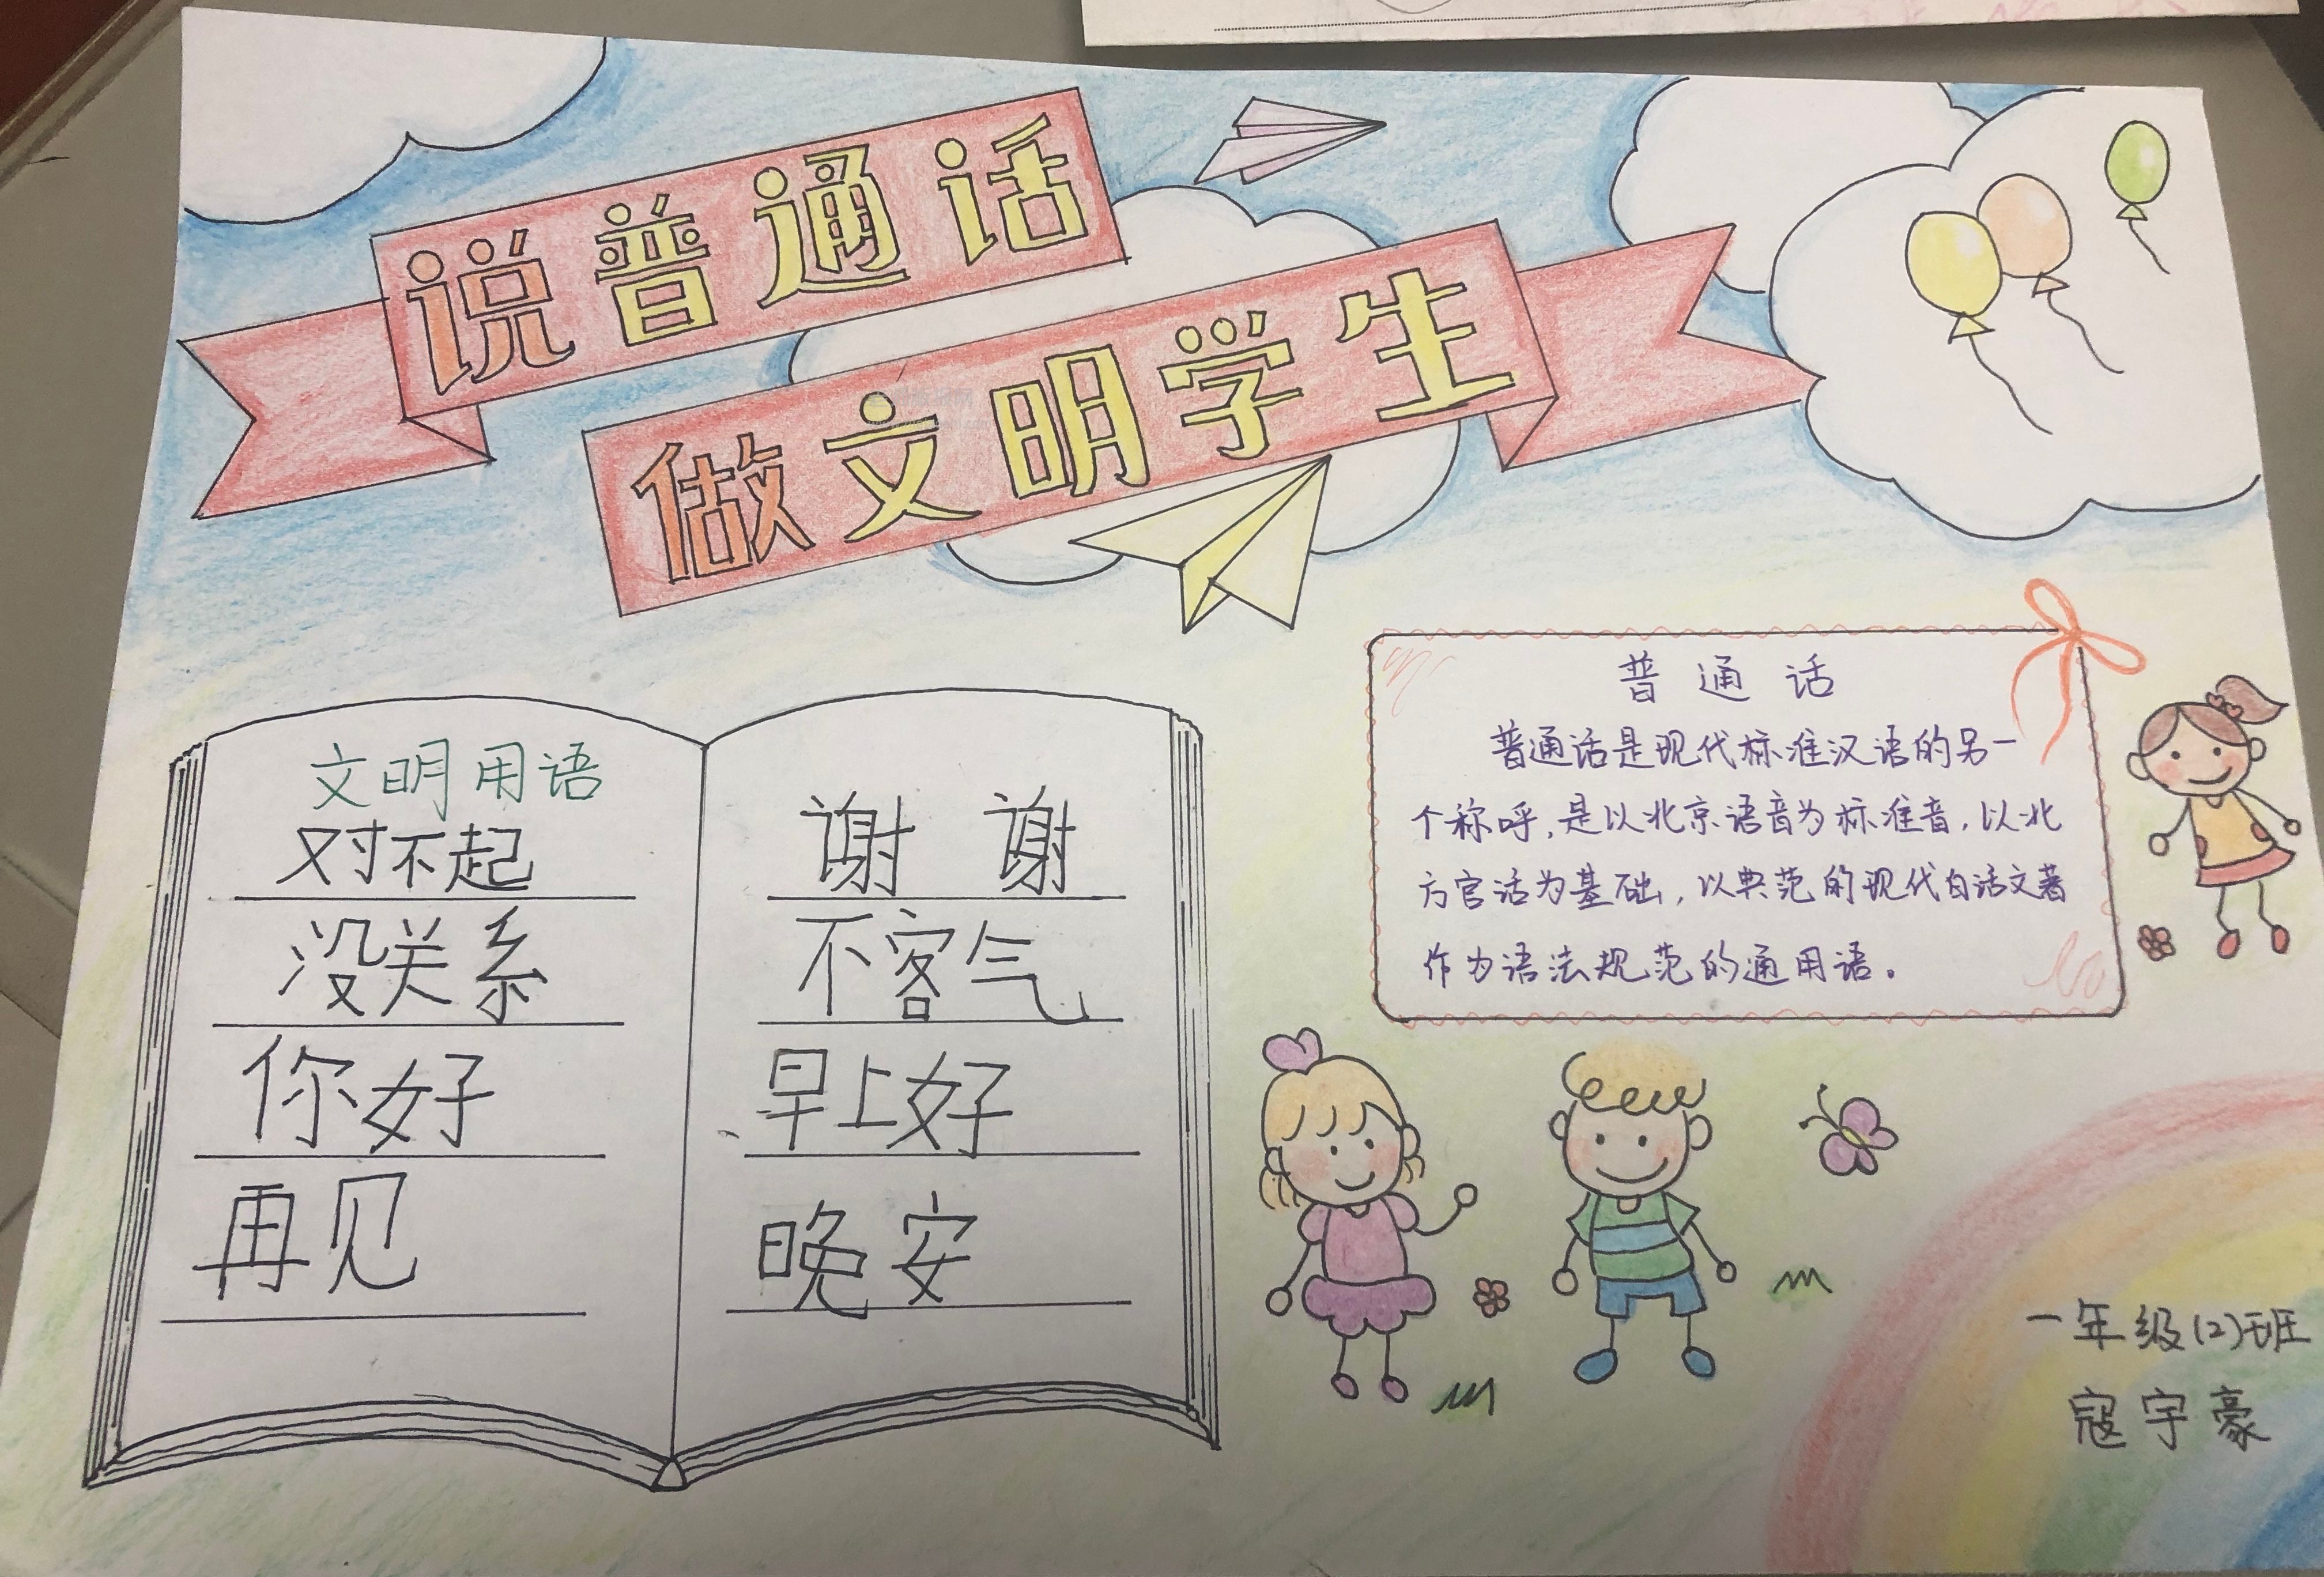 说普通话
做文明学生
文明用语
对不起
没关系
你好
再见
谢谢
不客气
早上好
晚安
普通话
普通话是现代标准汉语的另一
个称呼,是以北京语音为标准音,以北
方官话为基础,以典范的现代白话文著
作为语法规范的通用语。
一年级(2)班
寇宇豪